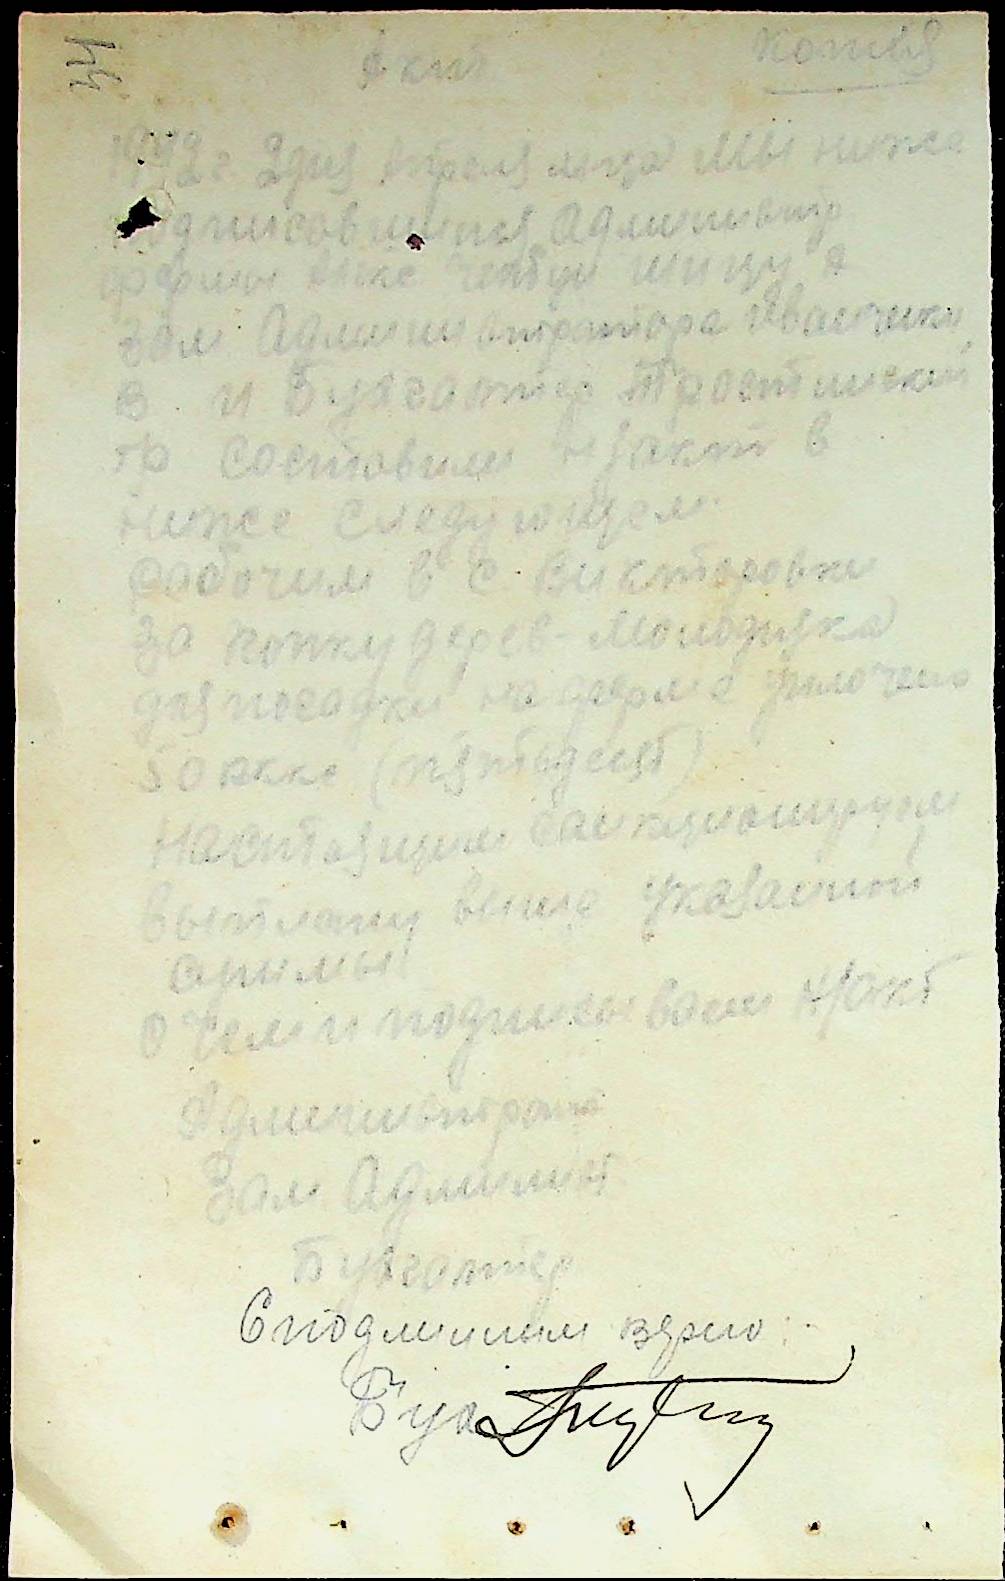 44
Акт Копия
1942 г. 2 дня апреля м-ца Мы ниже
подписавшиися Администр
фермы
зам Администратора Иванченко
В. и Бухгалтер Тростинский
гр составили н/акт в
ниже следующем
рабочим в с. Викторовки
За копку дерев-молодняка
для посадки на ферме уплочено
50 окке (пятьдесят)
Настоящим санкционируем
выплату выше указаной
суммы
О чем и подписываем н/акт
Администрат
Зам Админист
Бухгалтер
С подлинным верно:
Бух